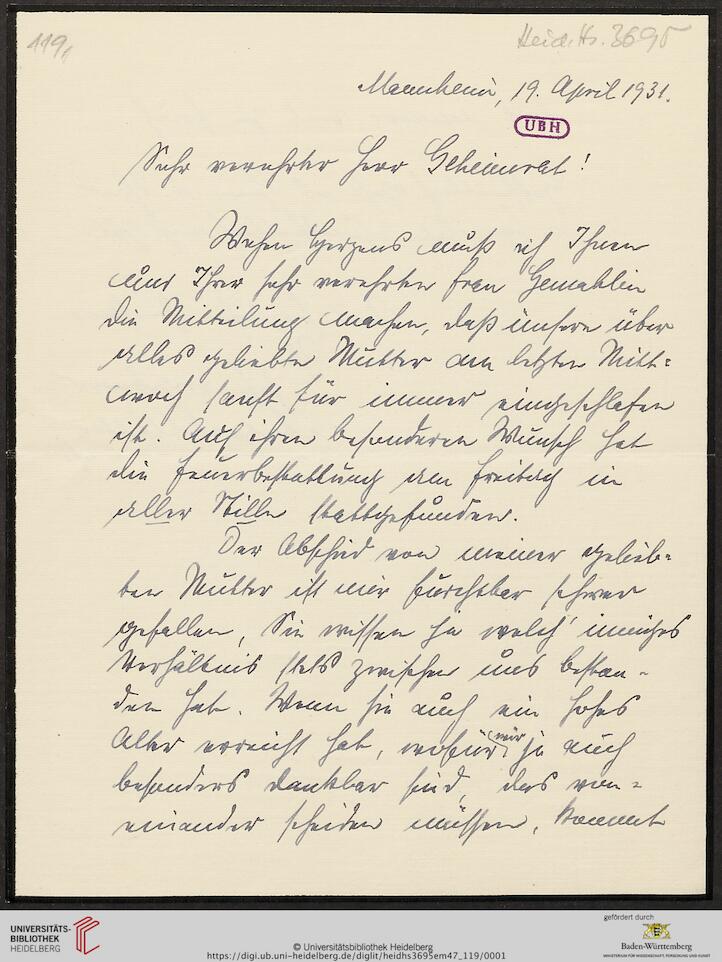 119,
Heid. Hs. 3695
Mannheim, 19. April 1931.
UBH
Sehr verehrter Herr Geheimrat!
Wehen Herzens muß ich Ihnen
und Ihrer sehr verehrten Frau Gemahlin
die Mitteilung machen, daß unsere über
alles geliebte Mutter am letzten Mitt-
woch sanft für immer eingeschlafen
ist. Auf ihren besonderen Wunsch hat
die Feuerbestattung am Freitag in
aller Stille stattgefunden.
Der Abschied von meiner gelieb-
ten Mutter ist mir furchtbar schwer
gefallen, Sie wissen ja welch' inniges
Verhältnis stets zwischen uns bestan-
den hat. Wenn sie auch ein hohes
Alter erreicht hat, wofür wir ja auch
besonders dankbar sind, das von-
einander scheiden müssen, kommt
UNIVERSITÄTS-
BIBLIOTHEK
HEIDELBERG
© Universitätsbibliothek Heidelberg
https://digi.ub.uni-heidelberg.de/diglit/heidhs3695em47_119/0001
gefördert durch
Baden-Württemberg
MINISTERIUM FÜR WISSENSCHAFT, FORSCHUNG UND KUNST